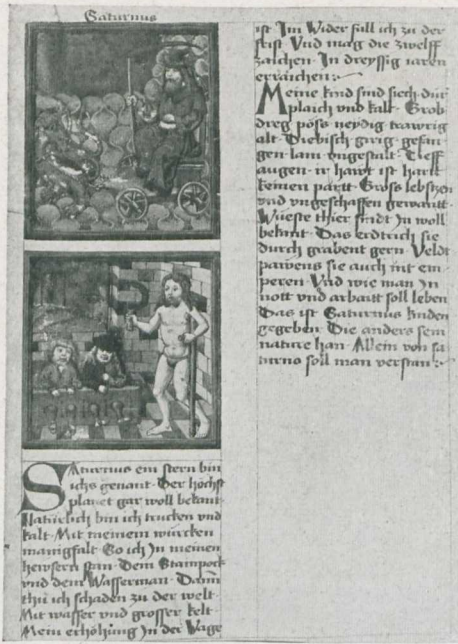 Saturnus
Saturnus ein stern bin
ichs genant · Der höchst
planet gar woll bekant ·
Naturlich bin ich trucken vnd
kalt · Mit meinem würcken
manigfalt · So ich Jn meinen
hewsern stan · Dem Stainpock
vnd dem Wasserman · Dann
thü ich schaden zu der welt ·
Mit wasser vnd grosser kelt ·
Mein erhöhung Jn der Wage
ist Jm Wider fall ich zu der
frist · Vnd mag die zwelff
zaichen · Jn dreyssig iaren
erraichen :
Meine kind sind siech dür
plaich vnd kalt · Grob
dreg pöss neydig trawrig
alt · Diebisch girig gefan
gen lam vngestalt · Tieff
augen · ir hawt ist hartt
keinen partt · Gross lebssen
vnd vngeschaffen gewantt ·
Wueste thier sindt Jn woll
bekant · Das erdtrich sie
durch grabent gern · Veldt
pawens sie auch nit em
peren · Vnd wie man Jn
nott vnd arbaitt soll leben
Das ist Saturnus kinden
gegeben · Die anders sein
nature han · Allein von sa
turno soll man verstan :